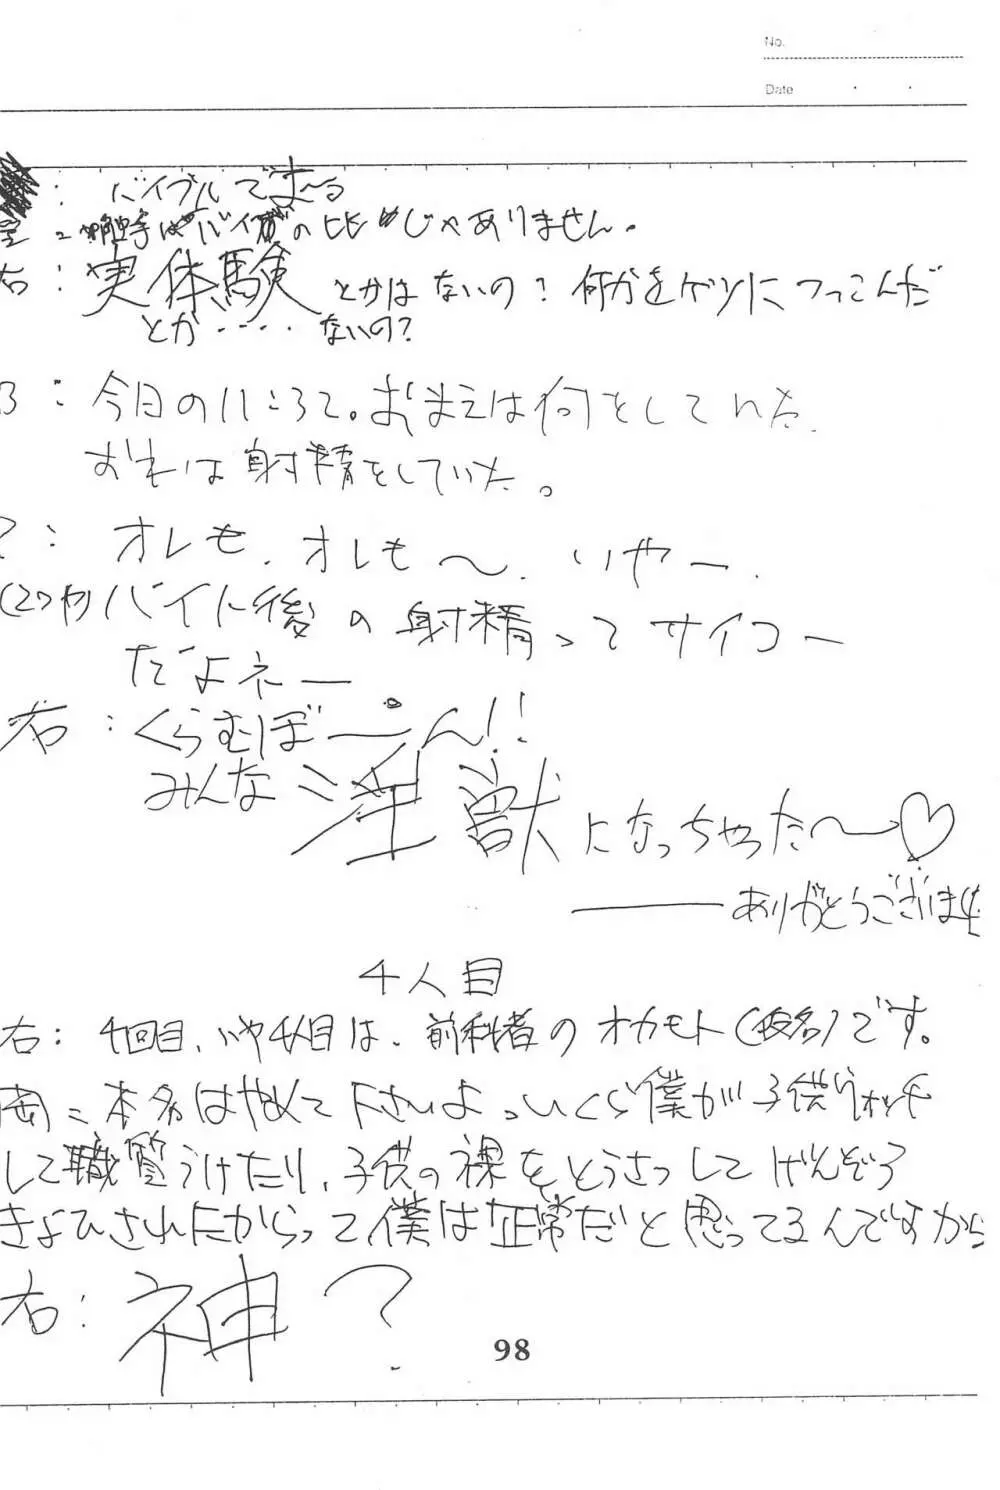 No.
Date
: バイブルでま〜る
触手はバイブの比じゃありません。
右: 実体験とかはないの? 何かをケツにつっこんだ
とか・・・・ないの?
: 今日の11ころて。おまえは何をしていた
おれは射精をしていた。
?: オレも、オレも〜、いやー、
バイト後の射精ってサイコー
だよネー
右: くらむぼーん!!
みんな淫獣になっちゃった〜♡
――ありがとうございま
4人目
右: 4回目、いや4人目は、前科者のオカモト(仮名)です。
岡: 本名はやめて下さいよっ いくら僕が子供ウォッチ
して職質うけたり、子供の裸をとうさつしてげんぞう
きょひされたからって僕は正常だと思ってるんですから
右: 神?
98